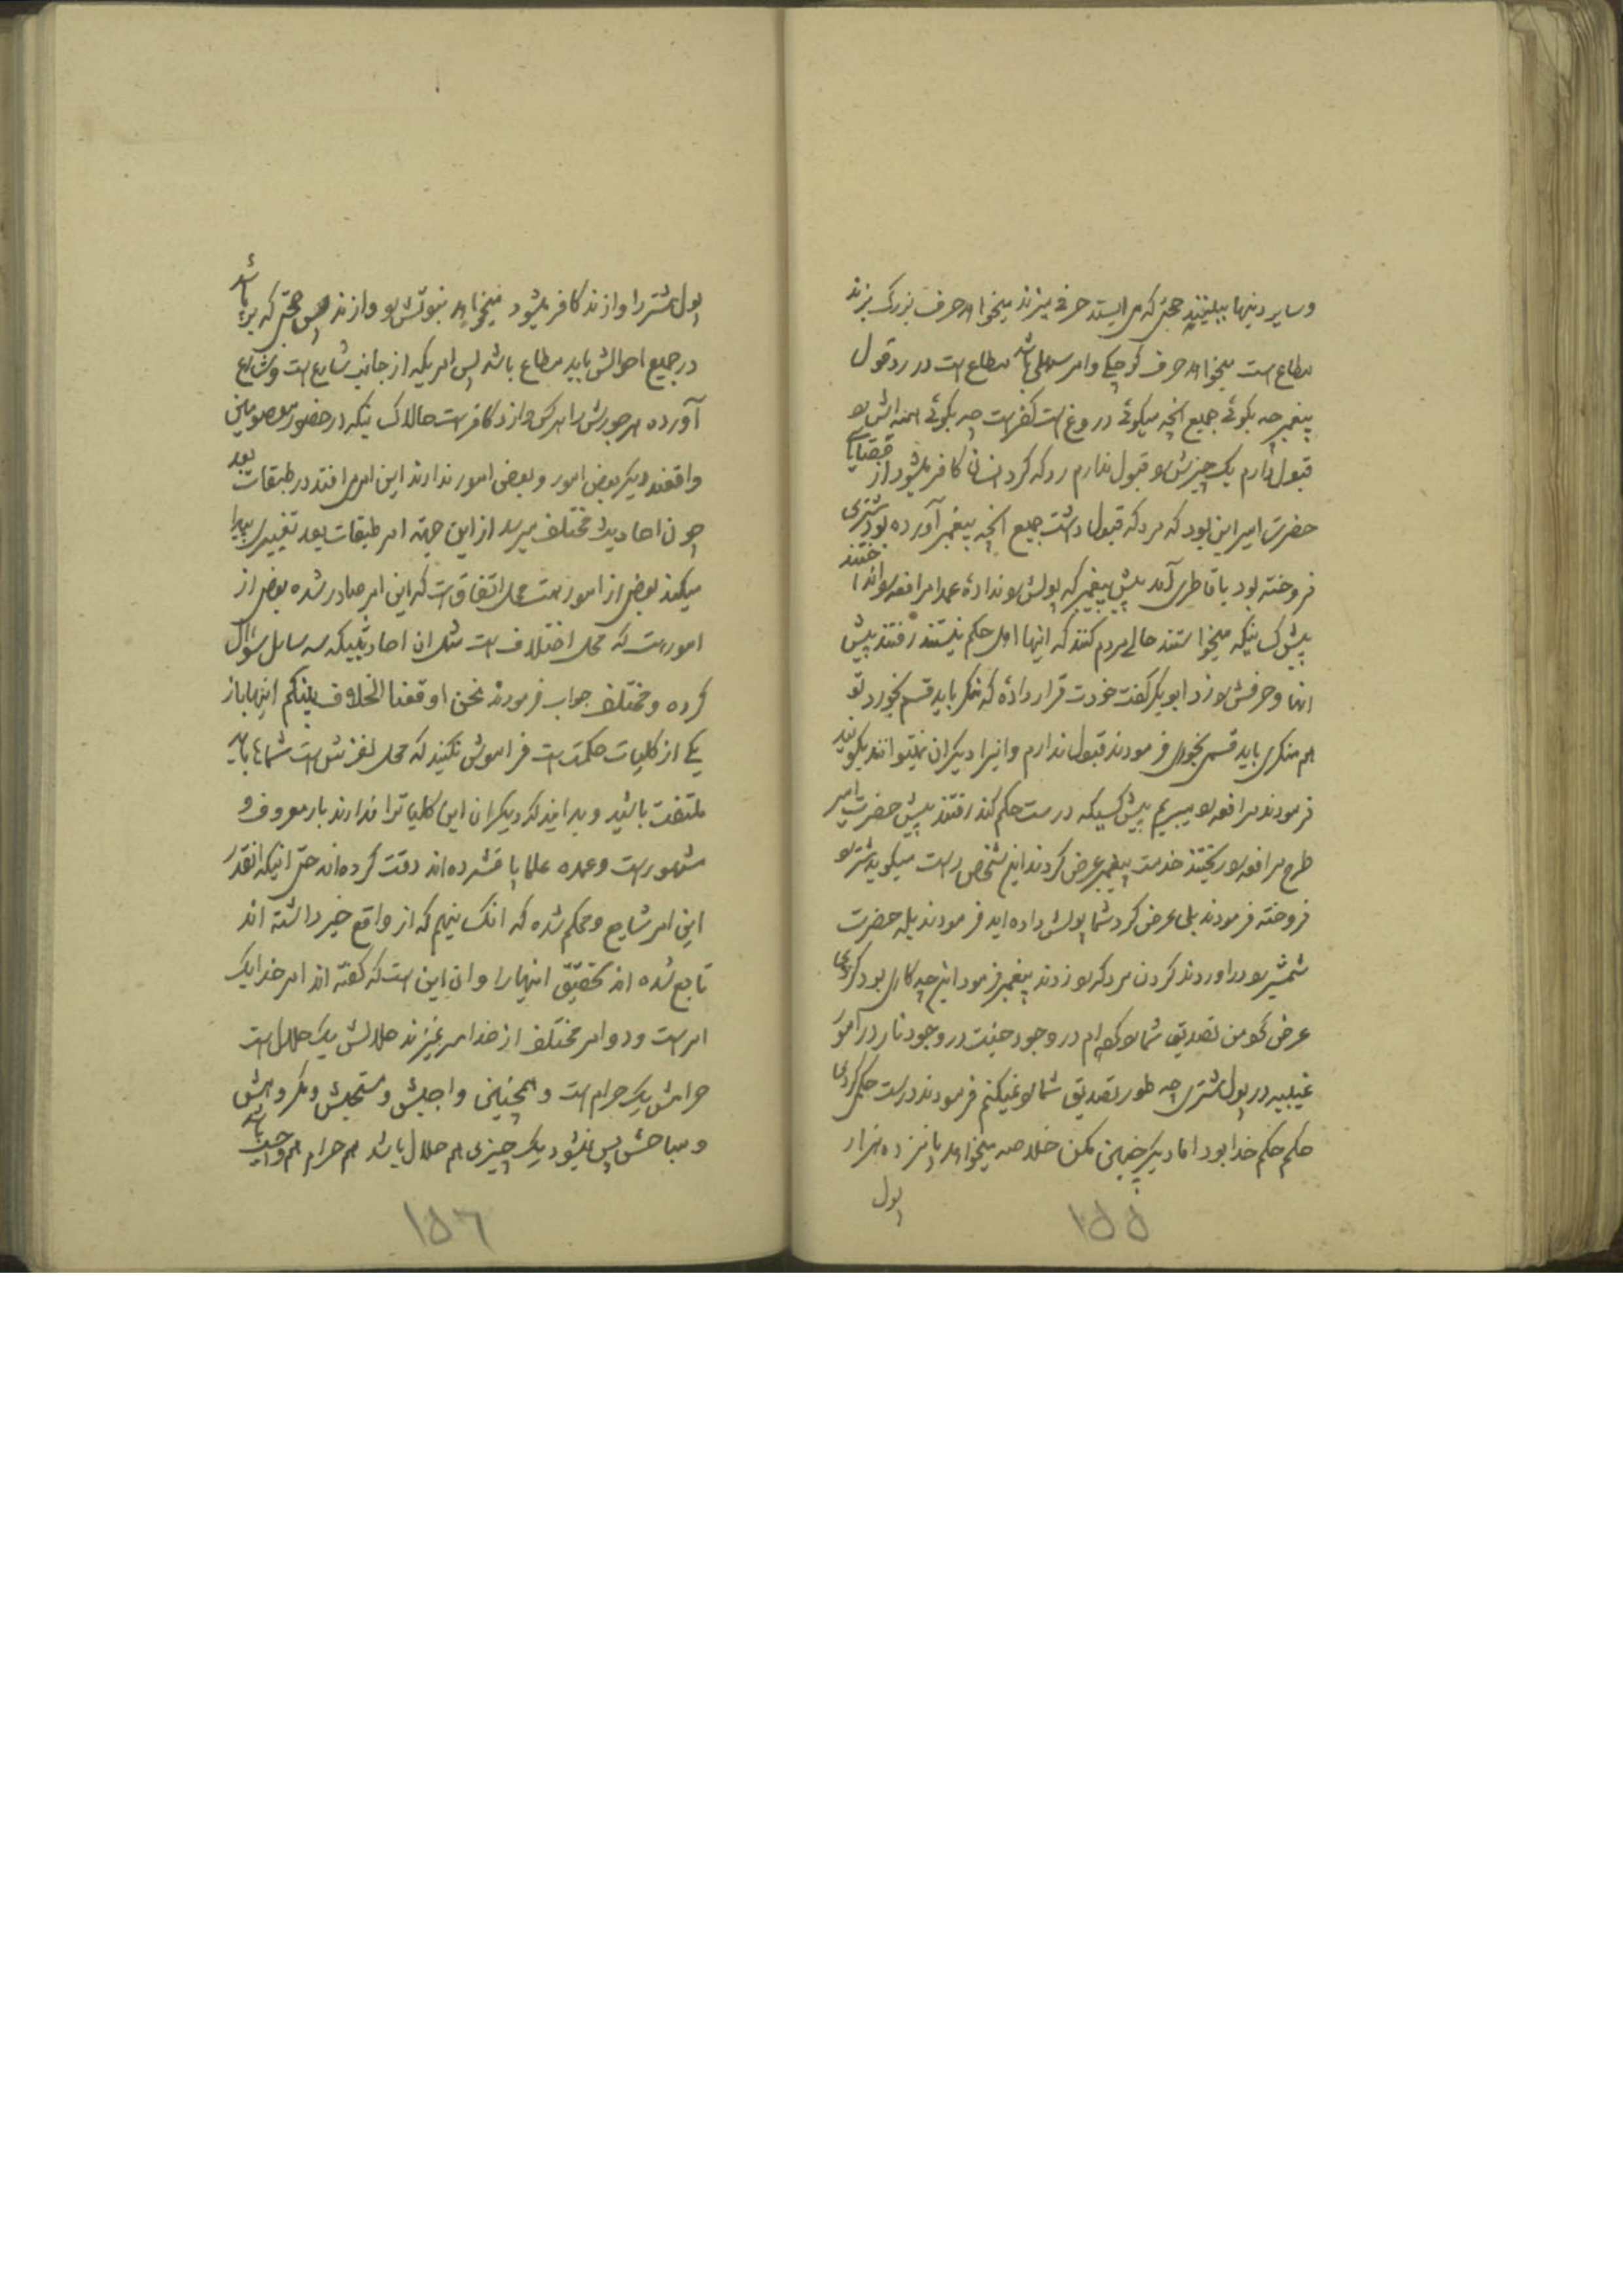 و سایر دینها ببینید حجتی که می ایستد حرفی میزند میخواهد حرف بزرگ بزند
مطاع است میخواهد حرف کوچکی و امر سهلی باشد مطاع است در رد قول
پیغمبر چه بگوئی جمیع آنچه میگوئی دروغ است کفر است چه بگوئی همه اش را
قبول دارم یک چیزش را قبول ندارم رد که کرد انسان کافر میشود از قضایای
حضرت امیر این بود که مردکه قبول داشت جمیع آنچه پیغمبر آورده بود شتری
فروخته بود یا قاطری آمد پیش پیغمبر که پولش را نداده عمدا مرافعه را انداختند
پیش کسانیکه میخواستند حالی مردم کنند که اینها اهل حکم نیستند رفتند پیش
آنها و حرفش را زد ابوبکر گفت خودت قرار داده که منکر باید قسم بخورد تو
هم منکری باید قسم بخوری فرمودند قبول ندارم و اینرا دیگران نمیتوانند بگویند
فرمودند مرافعه را میبریم پیش کسیکه درست حکم کند رفتند پیش حضرت امیر
طرح مرافعه را ریختند خدمت پیغمبر عرض کردند این شخص راست میگوید شتر را
فروخته فرمودند بلی عرض کرد شما پولش داده اید فرمودند بله حضرت
شمشیر را در اوردند گردن مردکه را زدند پیغمبر فرمود این چه کاری بود کردی
عرض کرد من تصدیق شما را کرده ام در وجود جنت در وجود نار در امور
غیبیه در پول شتری چه طور تصدیق شما را نمیکنم فرمودند درست حکم کردی
حکم حکم خدا بود اما دیگر چنین مکن خلاصه میخواهد پانزده هزار
پول
١٥٥
پول شتر را وازند کافر میشود میخواهد نبوتش را وازند پس حجتی که برپا باشد
در جمیع احوالش باید مطاع باشد پس امریکه از جانب شارع است و شارع
آورده هر جورش را هر کس وازد کافر است حالا کسانیکه در حضور معصومین
واقفند دیگر بعض امور و بعض امور ندارند این امر می افتد در طبقات بعد
چون احادیث مختلف میرسد از این جهة امر طبقات بعد تغییری پیدا
میکند بعض از امور است محل اتفاق است که این امر صادر شده بعض از
امور است که محل اختلاف است مثل ان احادیثیکه سه سایل سؤال
کرده و مختلف جواب فرمودند نحن اوقعنا الخلاف بینکم اینها باز
یکی از کلیات حکمت است فراموش نکنید که محل لغزش است شماها باید
ملتفت باشید و بدانید که دیگران این کلیات را ندارند بار معروف و
مشهور است و عمده علما پا فشرده اند دقت کرده اند حتی اینکه انقدر
این امر شایع و محکم شده که انکسانیهم که از واقع خبر داشته اند
تابع شده اند تحقیق اینها را و ان این است که گفته اند امر خدا یک
امر است و دو امر مختلف از خدا سر نمیزند حلالش یک حلال است
حرامش یک حرام است و همچنین واجبش و مستحبش و مکروهش
و مباحش پس نمیشود یک چیزی هم حلال باشد هم حرام هم واجب باشد
١٥٦